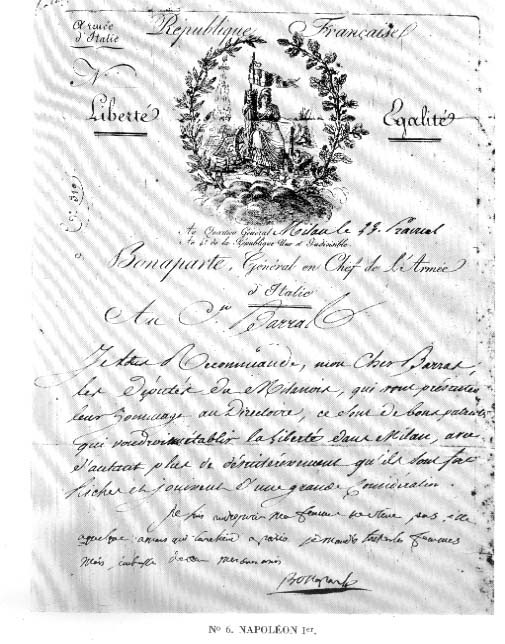 Armée
d'Italie
République Française
Liberté
Egalité
Au Quartier Général Milan le Prairial
An 4e de la République Une et Indivisible.
Bonaparte, Général en Chef de L'Armée
d'Italie
Au Cen Barras
Je Recommande, mon Cher Barras,
les députés du Milanois, qui vont présenter
leur hommage au Directoire, ce sont de bons patriotes
qui voudroient établir la Liberté dans Milan, avec
d'autant plus de désintéressement qu'ils sont fort
riches et jouissent d'une grande Considération.
Je suis ma femme ne vient pas, elle
a quelque amant qui à paris je les femmes
mais
Bonaparte
No 6. NAPOLÉON Ier.